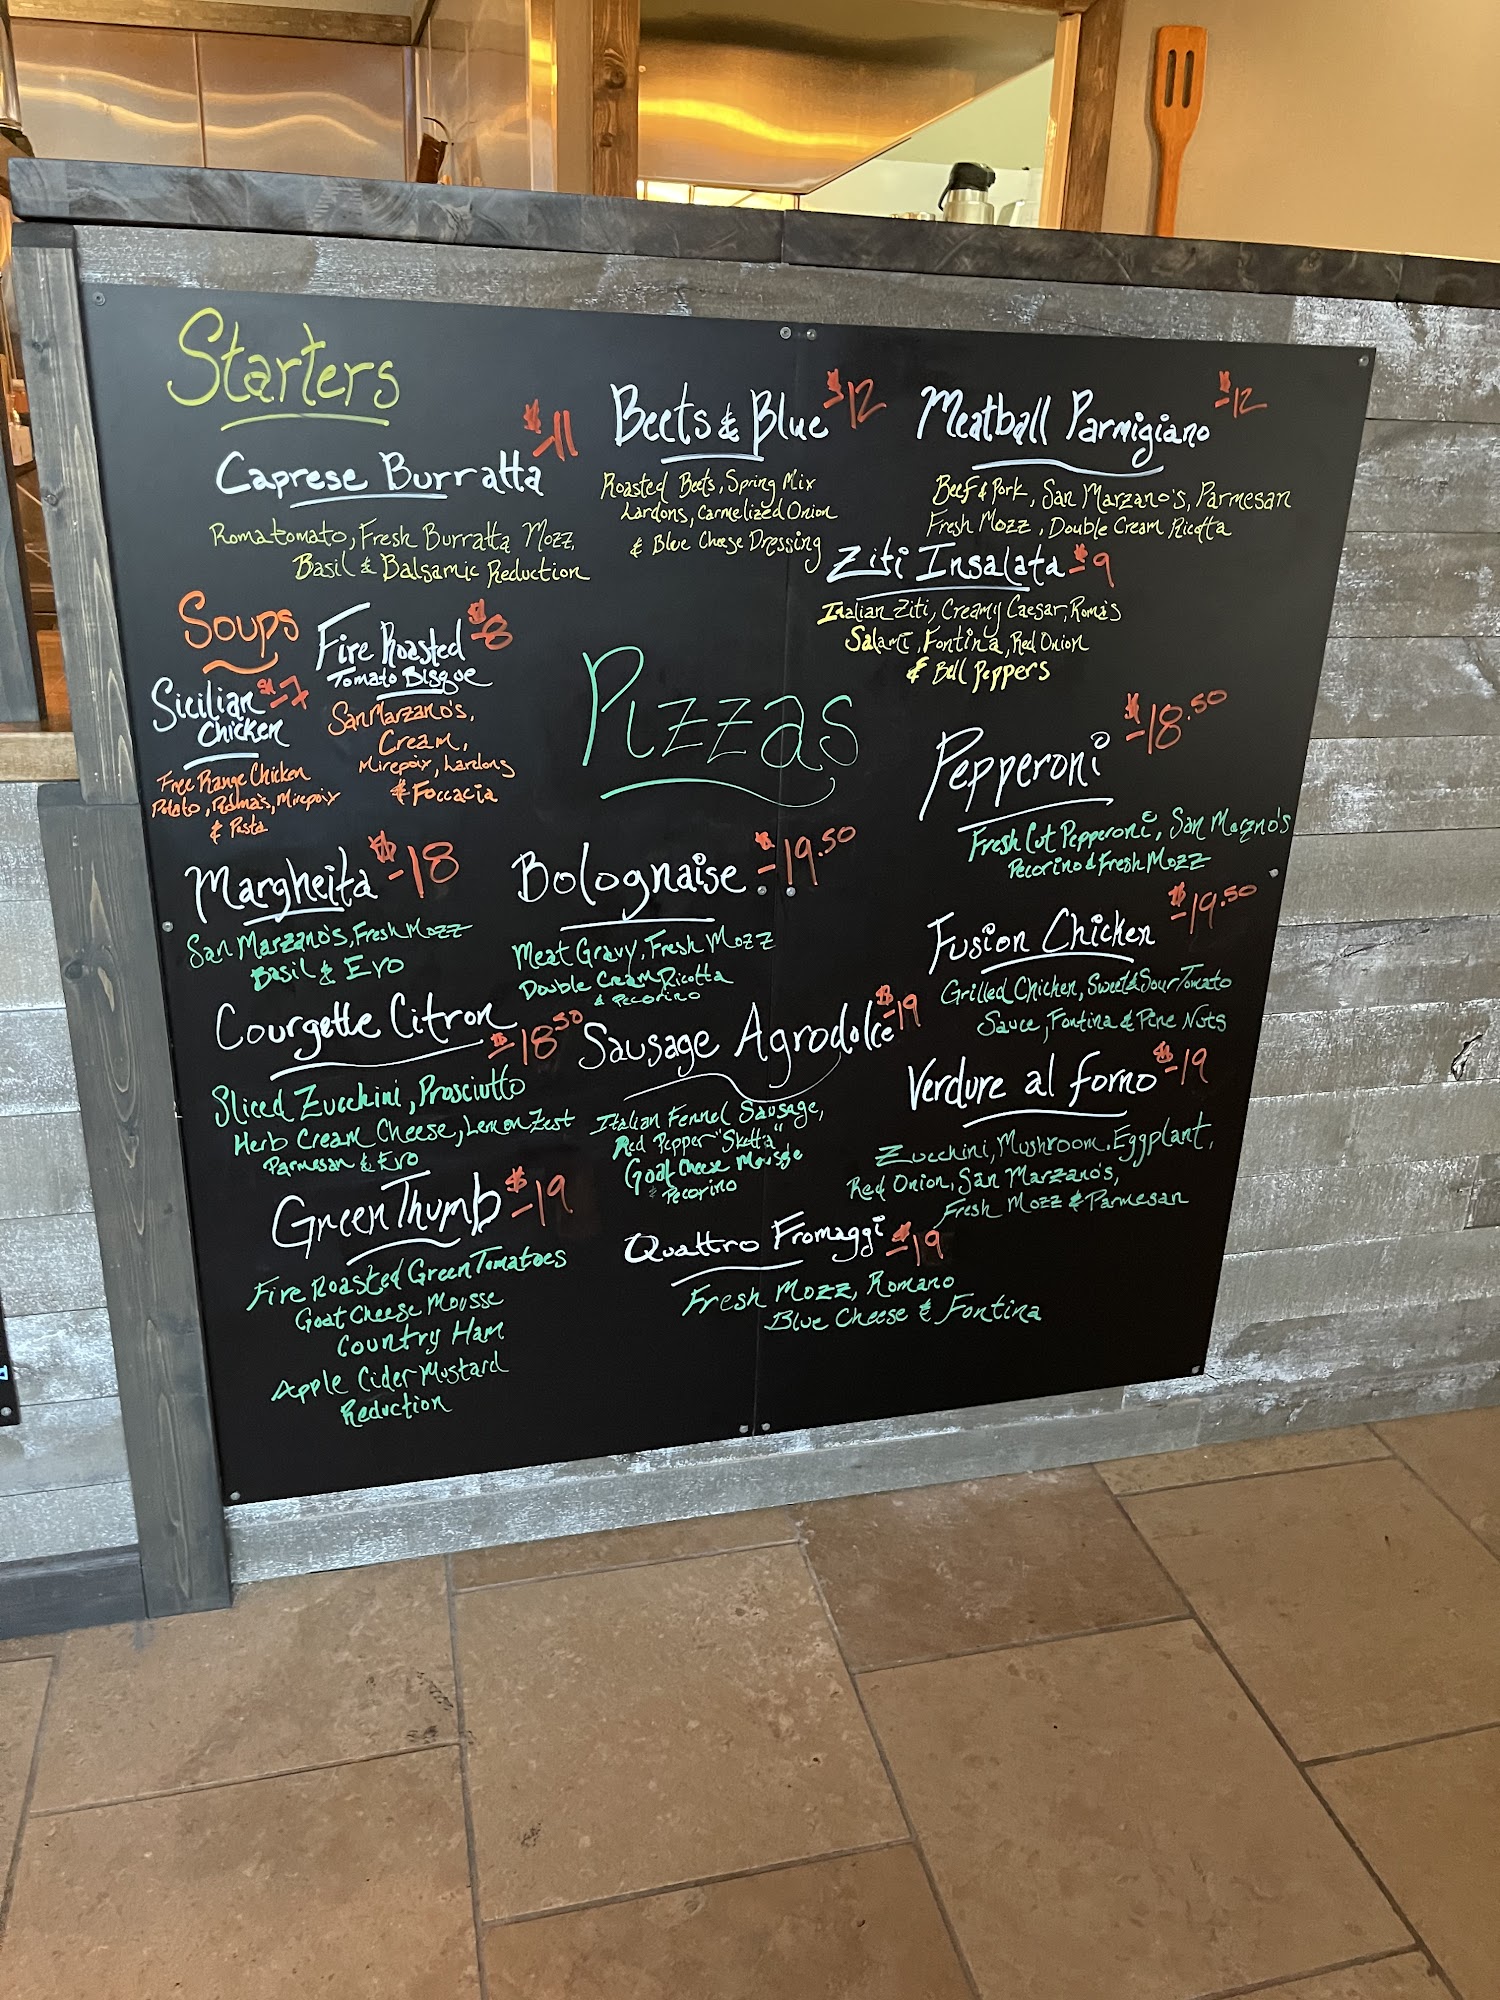 Starters
Caprese Burratta $11
Roma tomato, Fresh Burratta Mozz,
Basil & Balsamic Reduction
Beets & Blue $12
Roasted Beets, Spring Mix
Lardons, Carmelized Onion
& Blue Cheese Dressing
Meatball Parmigiano $12
Beef & Pork, San Marzano's, Parmesan
Fresh Mozz, Double Cream Ricotta
Ziti Insalata $9
Italian Ziti, Creamy Caesar, Roma's
Salami, Fontina, Red Onion
& Bell Peppers
Soups
Sicilian $7
Chicken
Free Range Chicken
Potato, Roma's, Mirepoix
& Pasta
Fire Roasted $8
Tomato Bisque
San Marzano's,
Cream,
Mirepoix, Lardons
& Foccacia
Pizzas
Margheita $18
San Marzano's, Fresh Mozz
Basil & Evo
Bolognaise $19.50
Meat Gravy, Fresh Mozz
Double Cream Ricotta
& Pecorino
Pepperoni $18.50
Fresh Cut Pepperoni, San Marzno's
Pecorino & Fresh Mozz
Fusion Chicken $19.50
Grilled Chicken, Sweet & Sour Tomato
Sauce, Fontina & Pine Nuts
Courgette Citron $18.50
Sliced Zucchini, Prosciutto
Herb Cream Cheese, Lemon Zest
Parmesan & Evo
Sausage Agrodolce $19
Italian Fennel Sausage,
Red Pepper "Sketta"
Goat Cheese Mousse
& Pecorino
Verdure al forno $19
Zucchini, Mushroom, Eggplant,
Red Onion, San Marzano's,
Fresh Mozz & Parmesan
Green Thumb $19
Fire Roasted Green Tomatoes
Goat Cheese Mousse
Country Ham
Apple Cider Mustard
Reduction
Quattro Fromaggi $19
Fresh Mozz, Romano
Blue Cheese & Fontina